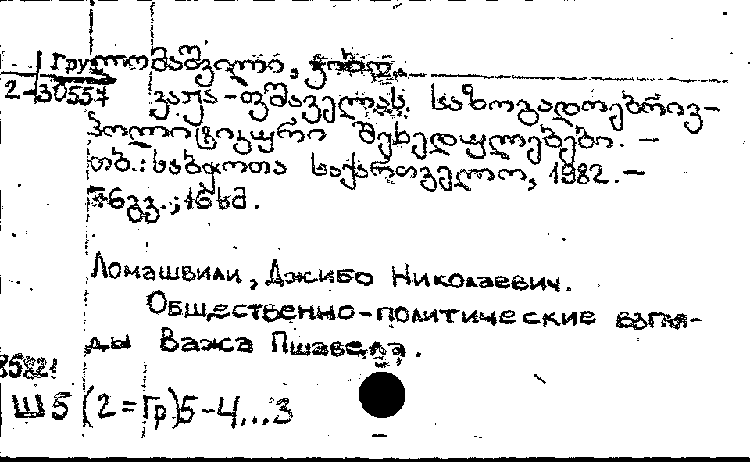 Груз
ლომაშვილი, ჯიბო.
2-30557
ვაჟა-ფშაველას საზოგადოებრივ-
პოლიტიკური შეხედულებები. –
თბ.: საბჭოთა საქართველო, 1982. –
76გვ.; 16სმ.
Ломашвили, Джибо Николаевич.
Общественно-политические взгля-
ды Важа Пшавела.
85821
Ш5(2=Гр)5-4...3